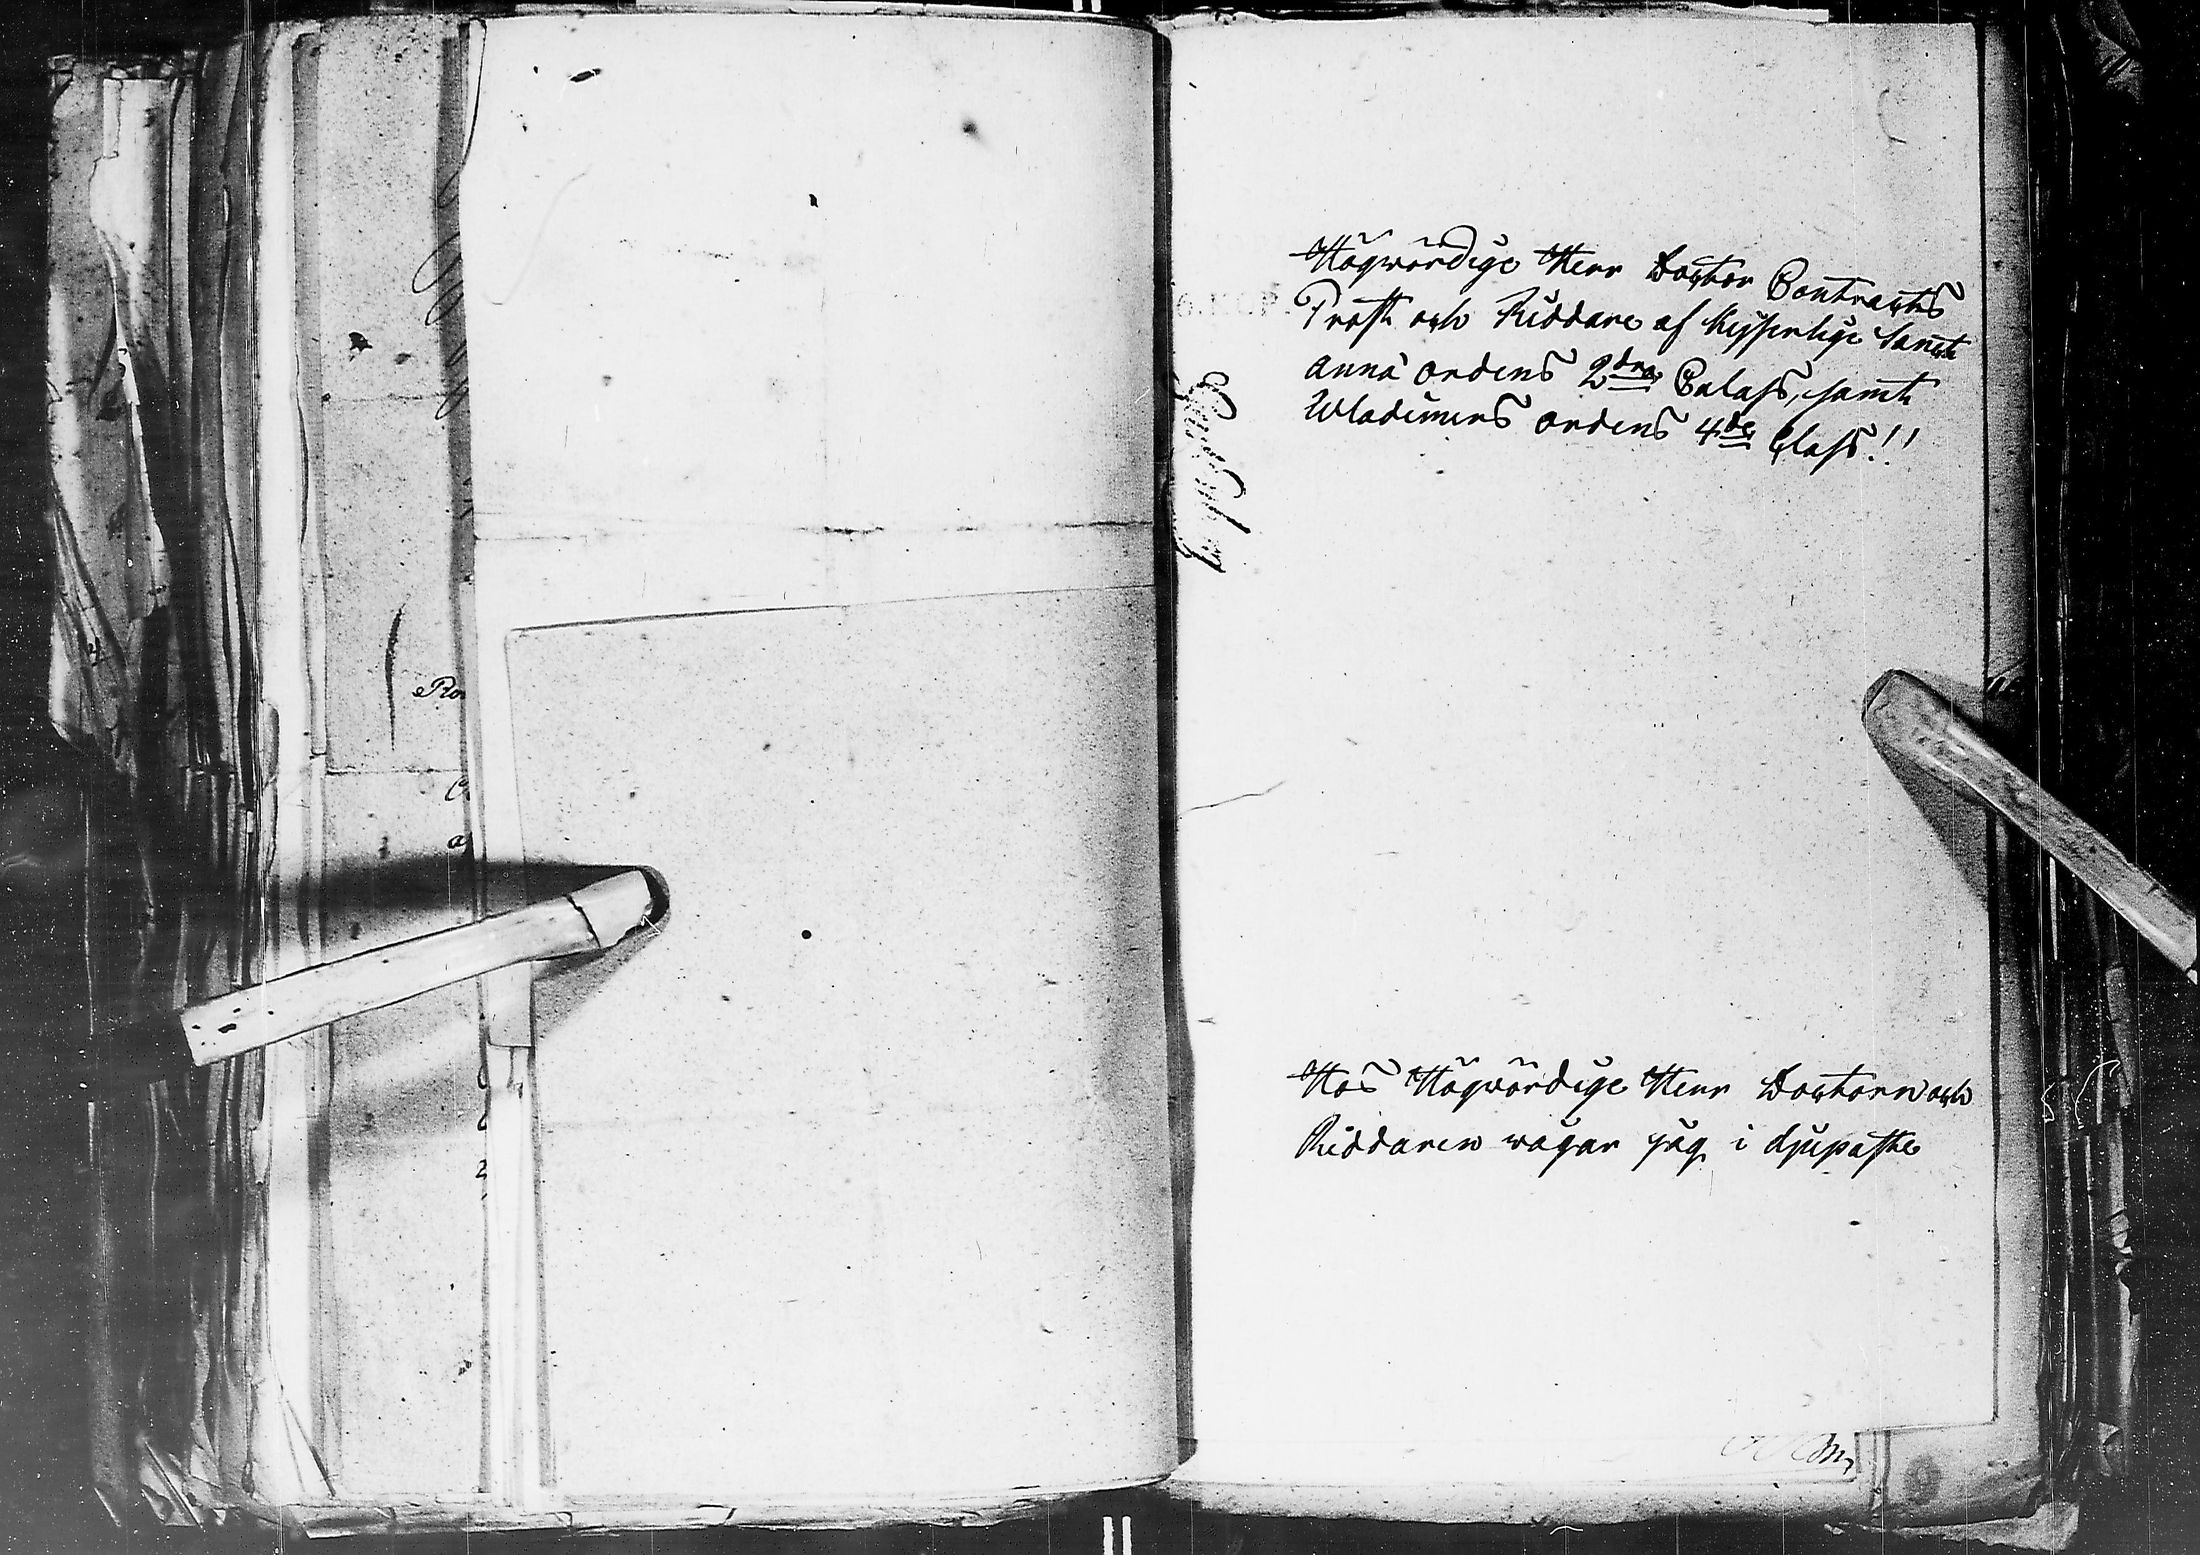 Högwördige Herr Doctor Contracts
Prost och Riddare af Keyserlige Sanct
Annä Ordens 2dra Calass, samt
Wladimirs Ordens 4de Class!!
Hos Högwördige Herr Doctorn och
Riddaren wågar jag i djupaste